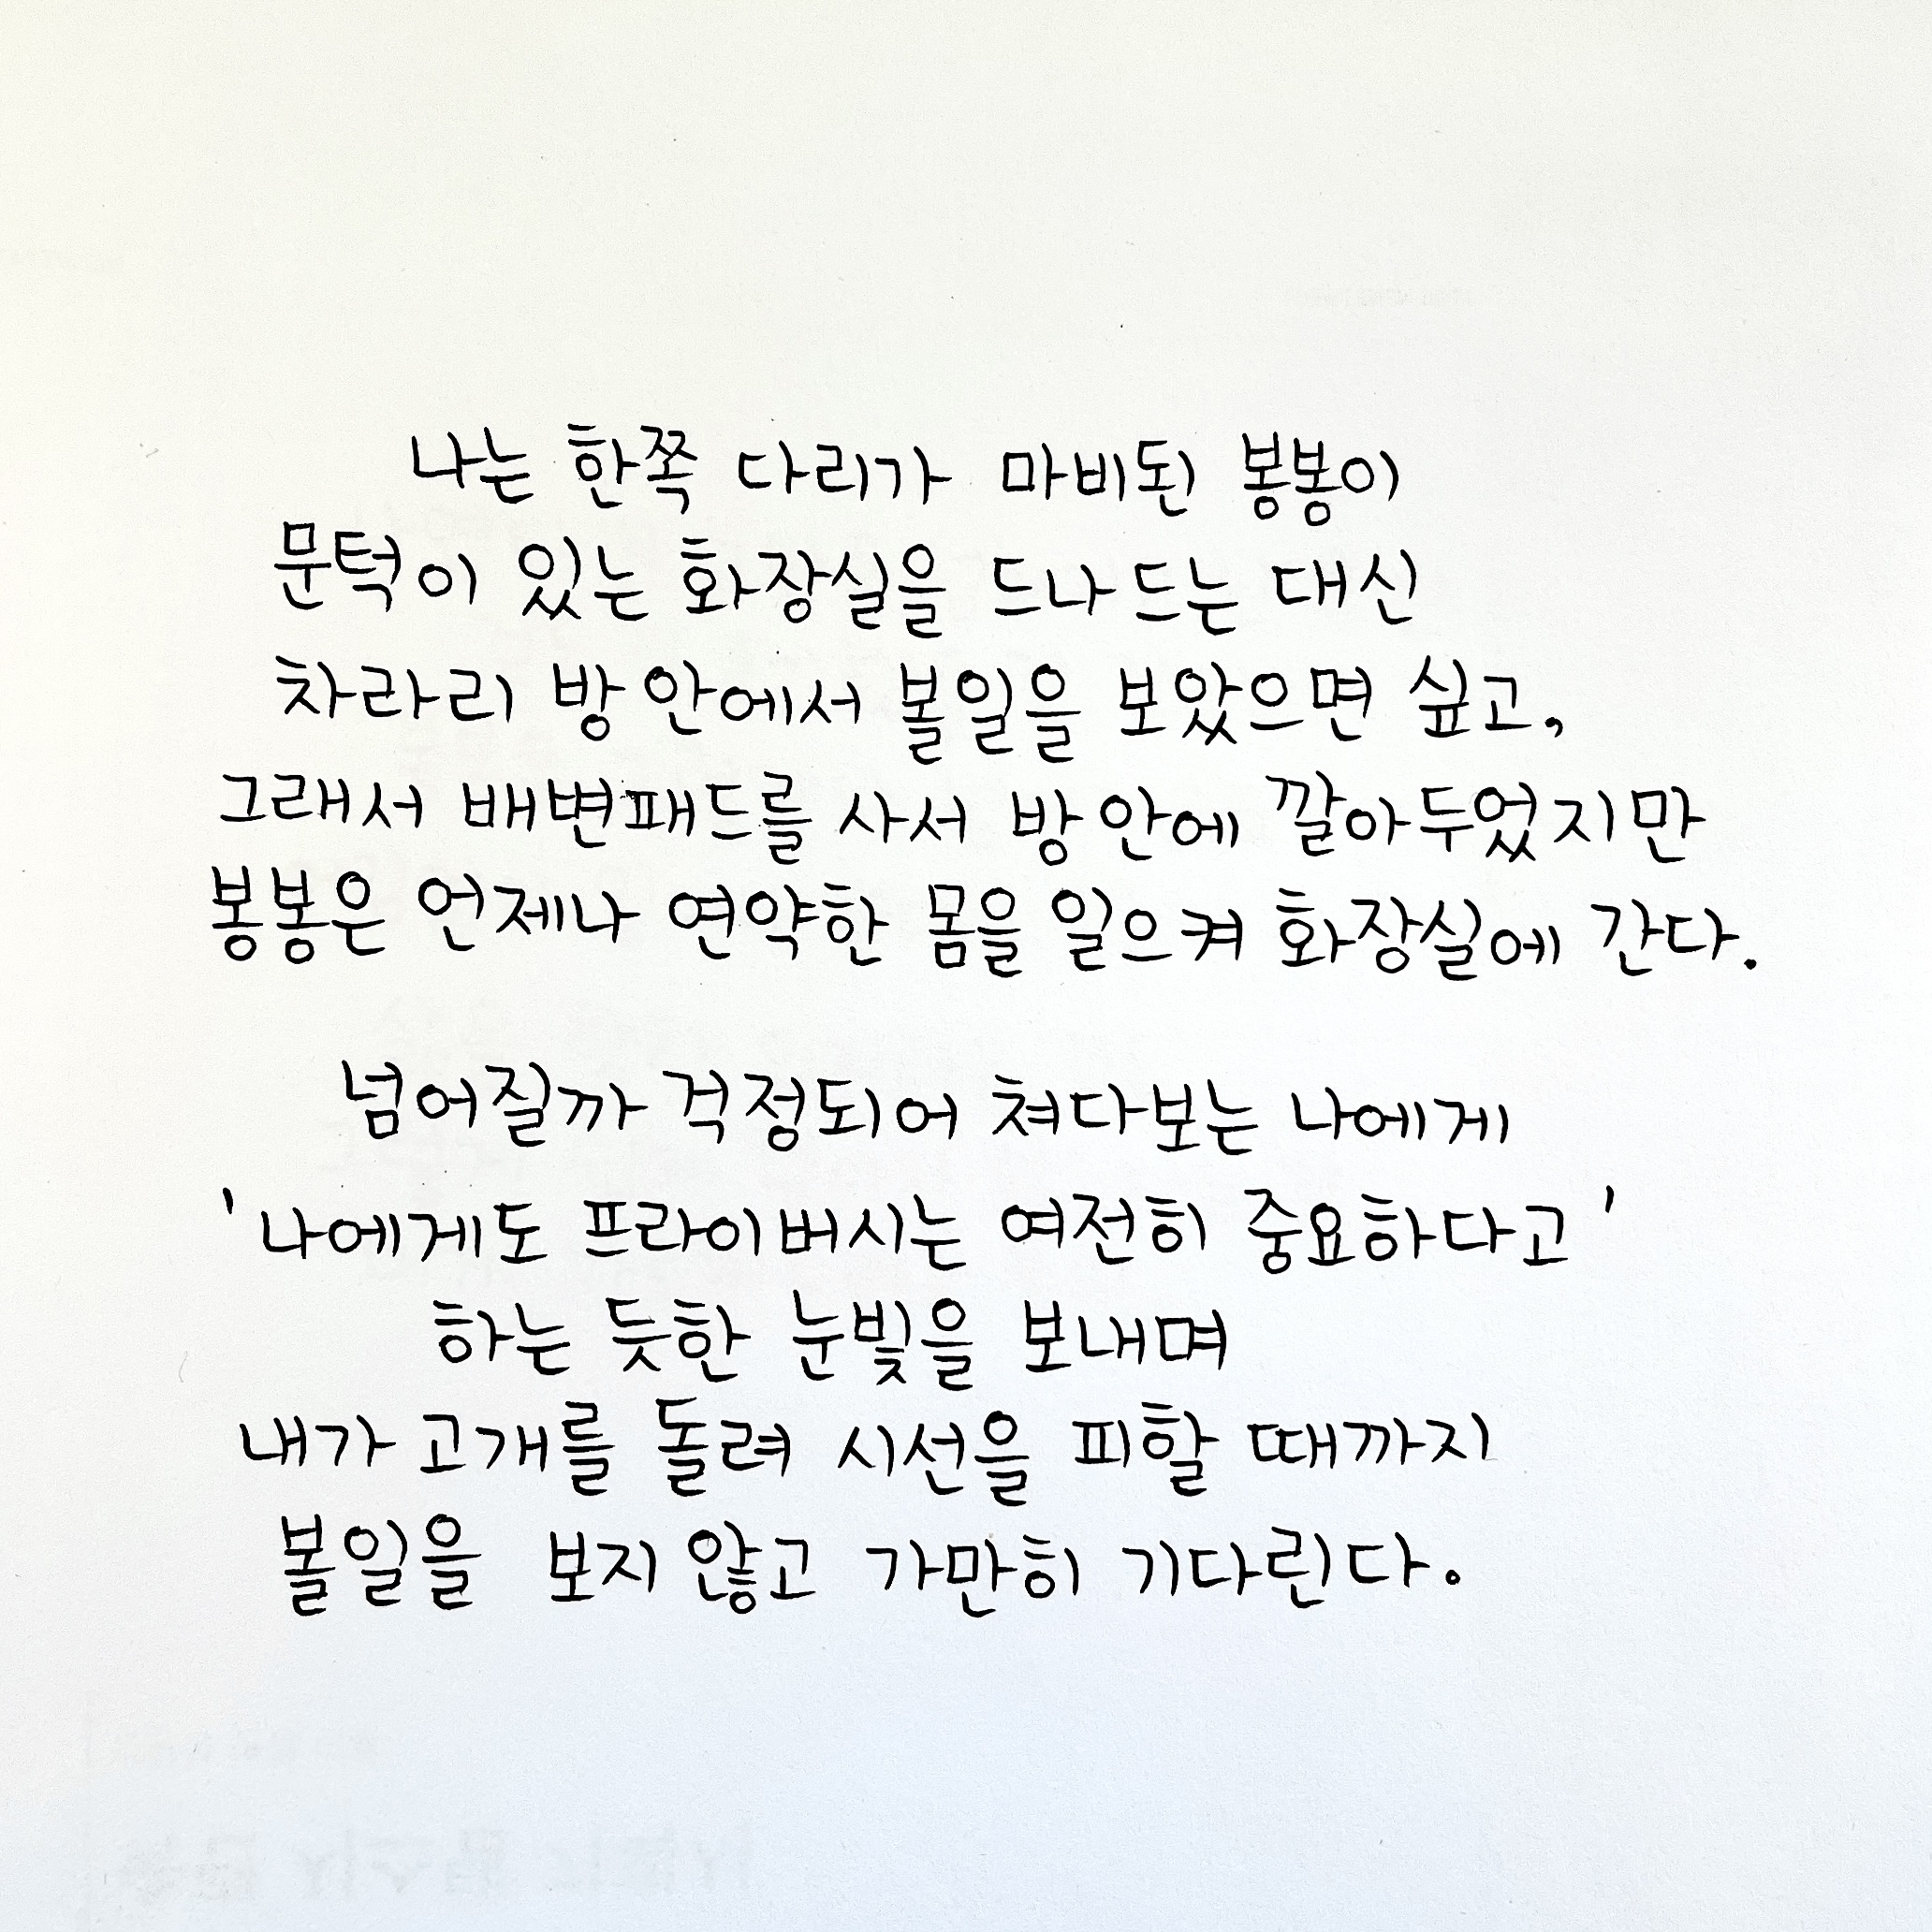 나는 한쪽 다리가 마비된 봉봉이
문턱이 있는 화장실을 드나드는 대신
차라리 방 안에서 볼일을 보았으면 싶고,
그래서 배변패드를 사서 방 안에 깔아두었지만
봉봉은 언제나 연약한 몸을 일으켜 화장실에 간다.
넘어질까 걱정되어 쳐다보는 나에게
'나에게도 프라이버시는 여전히 중요하다고'
하는 듯한 눈빛을 보내며
내가 고개를 돌려 시선을 피할 때까지
볼일을 보지 않고 가만히 기다린다.